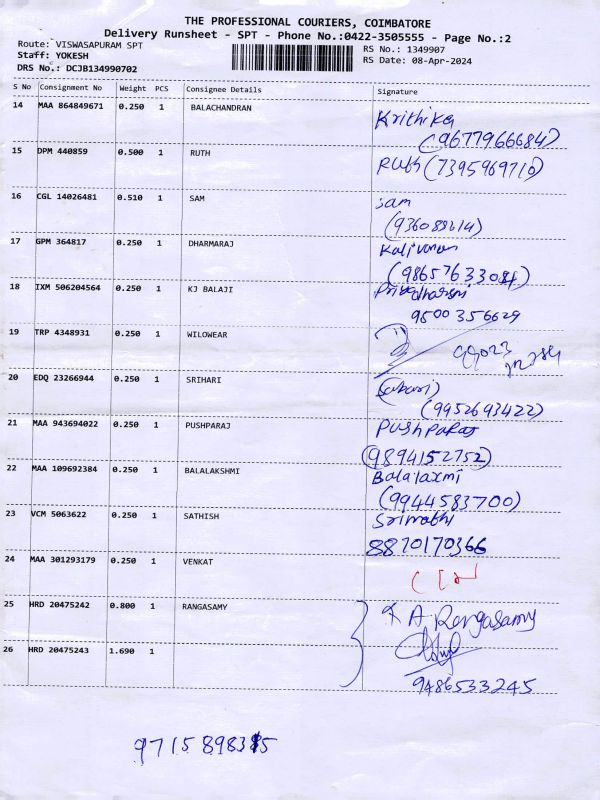 THE PROFESSIONAL COURIERS, COIMBATORE
Delivery Runsheet - SPT - Phone No.:0422-3505555 - Page No.:2
Route: VISWASAPURAM SPT RS No.: 1349907
Staff: YOKESH RS Date: 08-Apr-2024
DRS No.: DCJB134990702
S No Consignment No Weight PCS Consignee Details Signature
14 MAA 864849671 0.250 1 BALACHANDRAN Krithika
(9677966684)
15 DPM 440859 0.500 1 RUTH Ruth (7395969710)
16 CGL 14026481 0.510 1 SAM Sam
17 GPM 364817 0.250 1 DHARMARAJ
(9865763308)
18 IXM 506204564 0.250 1 KJ BALAJI
9500356629
19 TRP 4348931 0.250 1 WILOWEAR
20 EDQ 23266944 0.250 1 SRIHARI (Sabari)
(9952693422)
21 MAA 943694022 0.250 1 PUSHPARAJ PUSHPARAJ
(9894152752)
22 MAA 109692384 0.250 1 BALALAKSHMI Balalaxmi
(9944583700)
23 VCM 5063622 0.250 1 SATHISH
8870170366
24 MAA 301293179 0.250 1 VENKAT
25 HRD 20475242 0.800 1 RANGASAMY A Rengasamy
26 HRD 20475243 1.690 1
9486533245